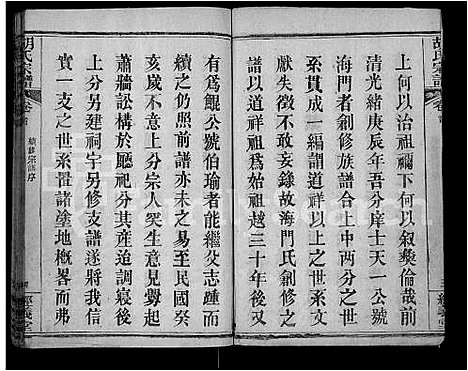 胡氏宗譜
卷首
上何以治祖禰下何以叙彝倫哉前
清光緒庚辰年吾分庠士天一公具
修譜熱忱於本族請合上中兩分之
系貫成一編謂道祥祖以前世遠年
獻失徵不敢妄錄故海門氏剏修宗
譜以道祥祖爲始祖越三十年後又
有爲鯤公號伯瑜者能繼父志踵而
續之仍照前譜亦未之改至民國癸
亥歲不意上分宗人突生意見釁起
蕭牆訟構於廳祀分其產追調寢於
上分另建祠宇另修支譜將數百年
實一支之世系置諸塗地概畧而弗
續修宗譜序
胡氏宗譜
卷首